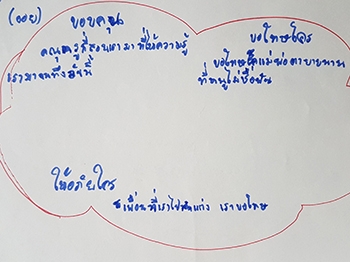 (ออย)
ขอบคุณ
คุณครูที่สอนเรามาที่ให้ความรู้
เรามาจนถึงวันนี้
ขอโทษใคร
ขอโทษแม่พ่อตายายนาน
ที่หนูไม่เชื่อฟัง
ให้อภัยใคร
เพื่อนที่เราไป แกล้ง เราขอโทษ